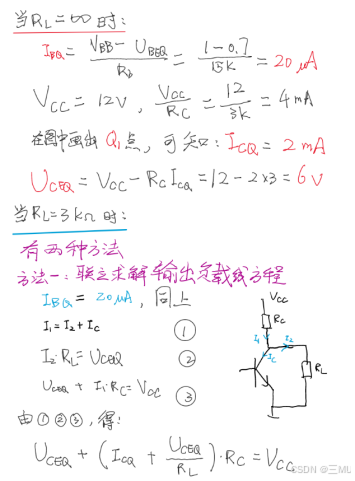 当RL=∞时:
IBQ = (VBB - UBEQ)/Rb = (1-0.7)/15K = 20μA
VCC = 12V, VCC/RC = 12/3K = 4mA
在图中画出Q1点,可知:ICQ = 2mA
UCEQ = VCC - RC ICQ = 12 - 2×3 = 6V
当RL=3kΩ时:
有两种方法
方法一:联立求解输出负载线方程
IBQ = 20μA, 同上
I1 = I2 + IC ①
I2·RL = UCEQ ②
UCEQ + I1·RC = VCC ③
VCC
RC
I1
I2
IC
RL
由①②③,得:
UCEQ + (ICQ + UCEQ/RL)·RC = VCC
CSDN @三MU